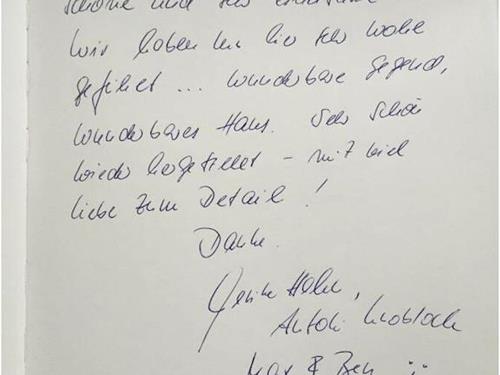 schöne und
Wir haben uns hier sehr wohl
gefühlt ... wunderbare Gegend,
wunderbares Haus. Sehr schön
wieder hergestellt – mit viel
Liebe zum Detail!
Danke.
Max & Ben